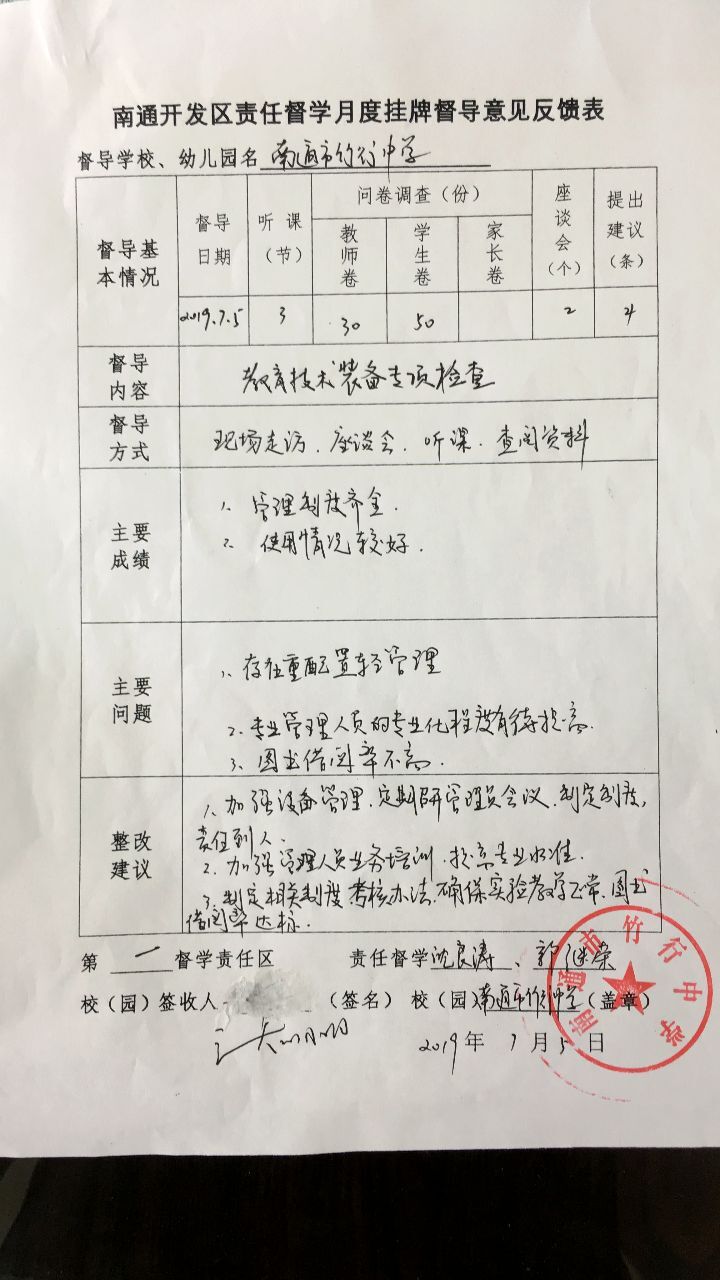 南通开发区责任督学月度挂牌督导意见反馈表
督导学校、幼儿园名 南通市竹行中学
督导基本情况
督导日期
听课（节）
问卷调查（份）
教师卷
学生卷
家长卷
座谈会（个）
提出建议（条）
2019.7.5 3 30 50 2 4
督导内容
教育技术装备专项检查
督导方式
现场走访、座谈会、听课、查阅资料
主要成绩
1、管理制度齐全.
2、使用情况较好.
主要问题
1、存在重配置轻管理
2、专业管理人员的专业化程度有待提高.
3、图书借阅率不高.
整改建议
1、加强设备管理.定期召开管理员会议、制定制度,
责任到人.
2、加强管理人员业务培训.提高专业水准.
3、制定相关制度考核办法.确保实验教学正常、图书
借阅率达标.
第 一 督学责任区 责任督学 沈良涛、 继荣
校（园）签收人 （签名） 校（园）南通市竹行中学（盖章）
2019年 7月 5日
南通市竹行中学